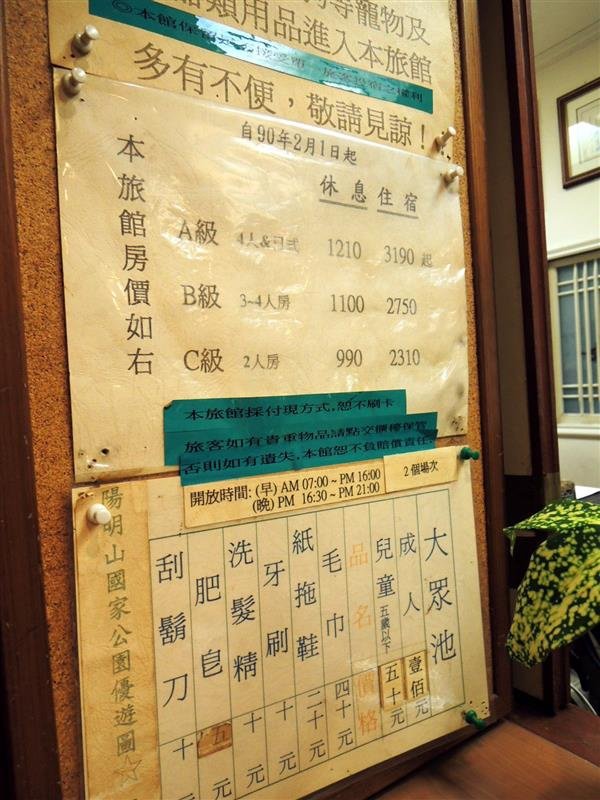 品類用品進入本旅館
◎本館保留
旅客投宿之權利
多有不便，敬請見諒！
自90年2月1日起
本旅館房價如右
休息 住宿
A級 4人&日式 1210 3190 起
B級 3~4人房 1100 2750
C級 2人房 990 2310
本旅館採付現方式,恕不刷卡
旅客如有貴重物品請點交櫃檯保管
否則如有遺失,本館恕不負賠償責任.
開放時間: (早) AM 07:00 ~ PM 16:00
(晚) PM 16:30 ~ PM 21:00
2 個場次
大眾池
成人 壹佰元
兒童 五歲以下 五十元
品名 價格
毛巾 四十元
紙拖鞋 二十元
牙刷 十元
洗髮精 十元
肥皂 五元
刮鬍刀 十元
陽明山國家公園優遊圖☆